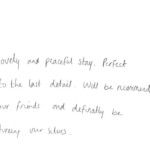 ovely and peaceful stay. Perfect
to the last detail. Will be recommend
our friends and definatly be